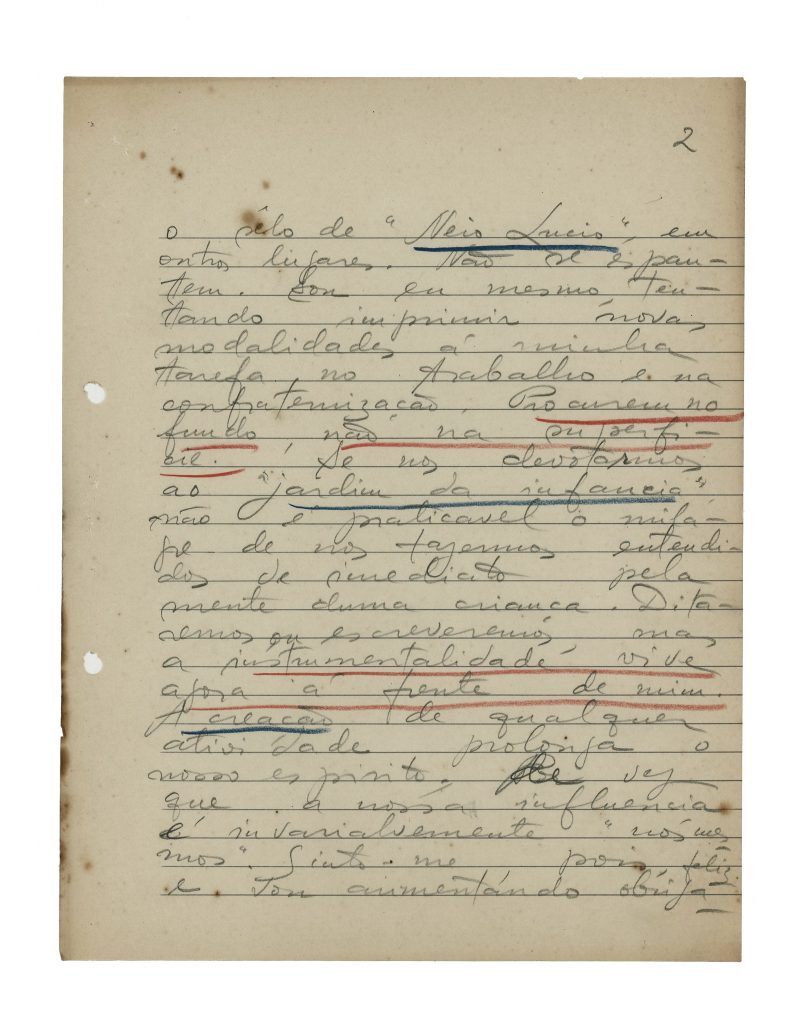 2
o sêlo de "Neio Lucio", em
outros lugares. Não se espan-
tem. Sou eu mesmo ten-
tando imprimir novas
modalidades á minha
tarefa no trabalho e na
confraternização. Procurem no
fundo, não na superfi-
cie. Se nos devotarmos
ao "jardim da infancia"
não é praticavel o mila-
gre de nos fazermos entendi-
dos de imediato pela
mente duma criança. Dita-
remos ou escreveremos, mas
a instrumentalidade vive
agora á frente de mim.
A creação de qualquer
atividade prolonga o
nosso espirito. vez
que a nossa influencia
é invariavelmente "nós mes
mos". Sinto-me pois feliz
e vou aumentando obriga-